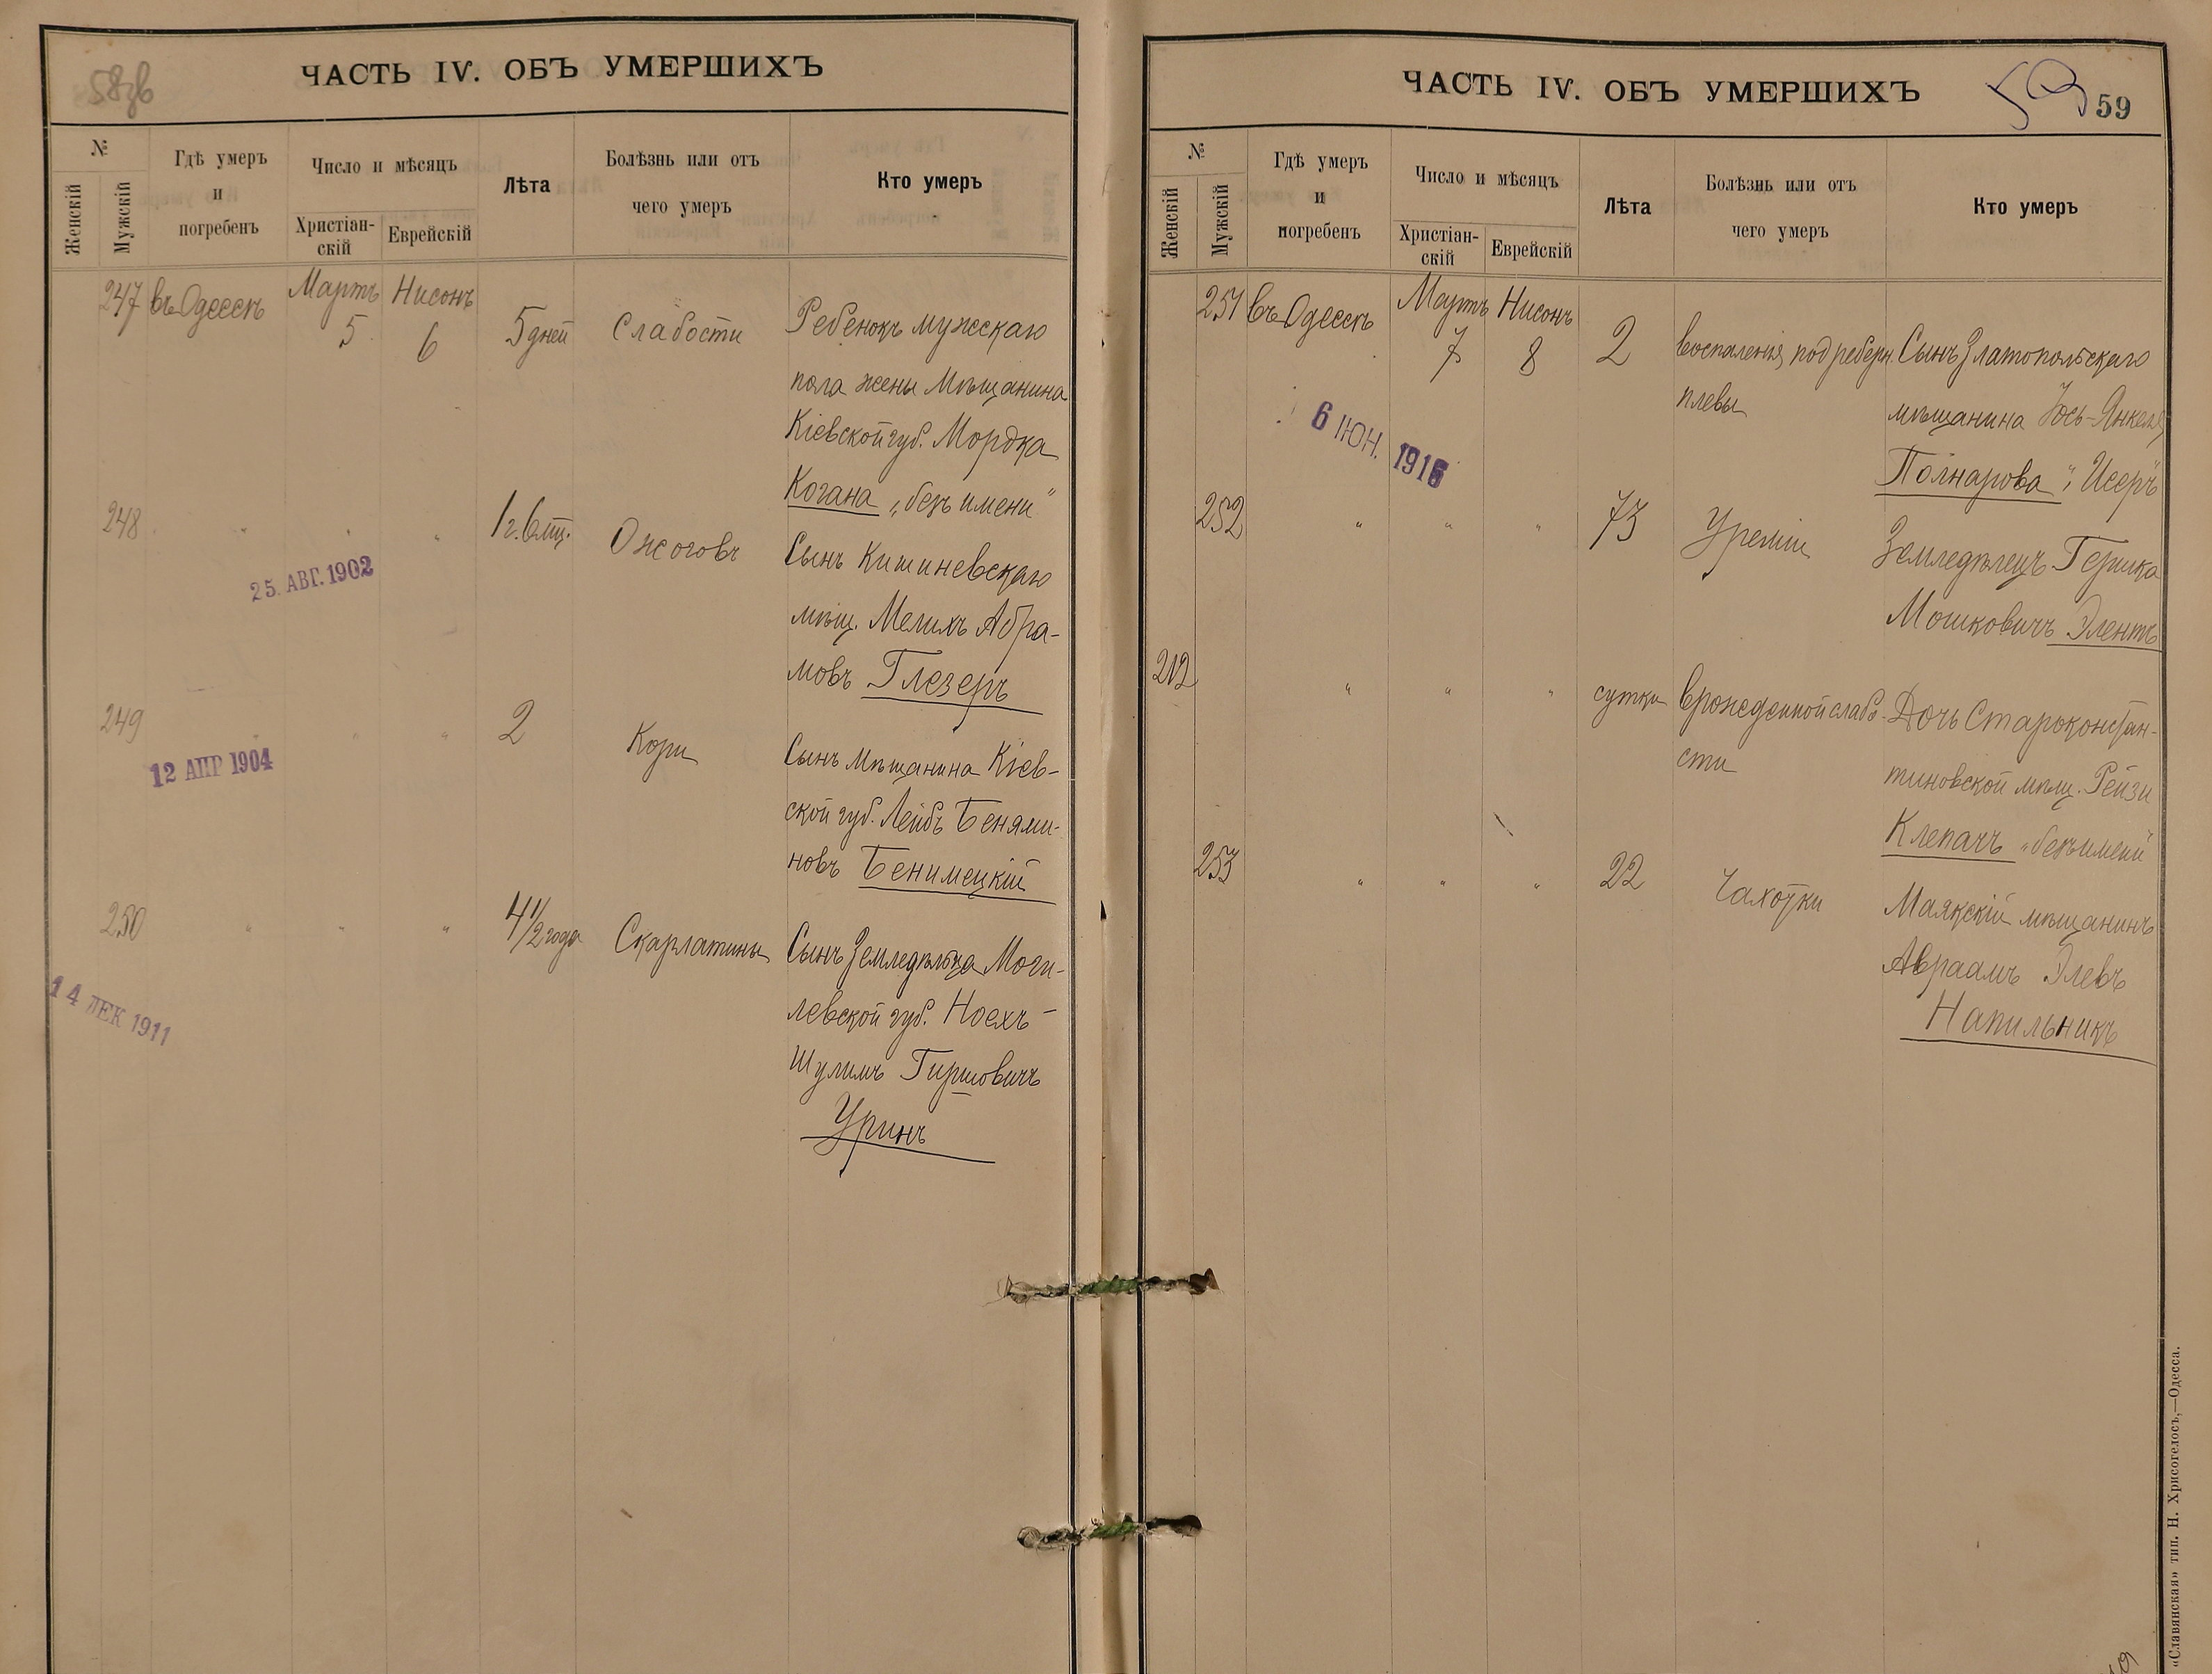 58об
ЧАСТЬ IV. ОБЪ УМЕРШИХЪ
№
Женскій
Мужскій
Гдѣ умеръ
и
погребенъ
Число и мѣсяцъ
Христіан-
скій
Еврейскій
Лѣта
Болѣзнь или отъ
чего умеръ
Кто умеръ
247 въ Одессѣ Мартъ 5 Нисонъ 6 5 дней Слабости Ребенокъ мужскаго
пола жены Мѣщанина
Кіевской губ. Мордка
Когана „безъ имени“
248 " " " 1 г. 6 мц. Ожоговъ Сынъ Кишиневскаго
25. АВГ. 1902
мѣщ. Мелихъ Абра-
мовъ Глезеръ
249 " " " 2 Кори Сынъ Мѣщанина Кіев-
12 АПР 1904
ской губ. Лейбъ Бенями-
новъ Бенимецкій
250 " " " 4 1/2 года Скарлатины Сынъ Земледѣльца Моги-
14 ДЕК 1911
левской губ. Ноехъ-
Шулимъ Гиршовичъ
Уринъ
ЧАСТЬ IV. ОБЪ УМЕРШИХЪ
59
59
№
Женскій
Мужскій
Гдѣ умеръ
и
погребенъ
Число и мѣсяцъ
Христіан-
скій
Еврейскій
Лѣта
Болѣзнь или отъ
чего умеръ
Кто умеръ
251 въ Одессѣ Мартъ 7 Нисонъ 8 2 воспаленія подреберн. Сынъ Златопольскаго
плевы мѣщанина Іось-Янкеля
6 ІЮН. 1916
Полнарова „Исеръ“
252 " " " 73 Уреміи Земледѣлецъ Гершка
Мошковичъ Элентъ
212 " " " сутки врожденной слабо- Дочь Староконстан-
сти тиновской мѣщ. Рейзи
Клепачъ „безъ имени“
253 " " " 22 Чахотки Маякскій мѣщанинъ
Авраамъ Элевъ
Напильникъ
«Славянская» тип. Н. Хрисогелосъ,—Одесса.